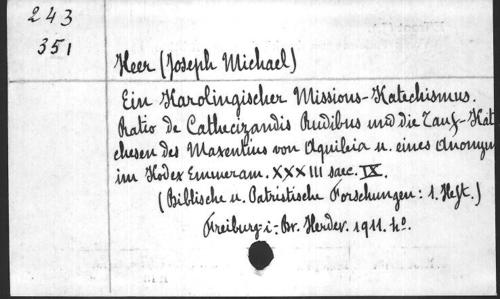 243
351
Heer (Joseph Michael)
Ein Karolingischer Missions-Katechismus.
Ratio de Cathecizandis Rudibus und die Tauf-Kat
chesen des Maxentius von Aquileia u. eines Anonym
im Kodex Emmeram. XXXIII saec. IX.
(Biblische u. Patristische Forschungen: 1. Heft.)
Freiburg-i-Br. Herder. 1911. 4º.